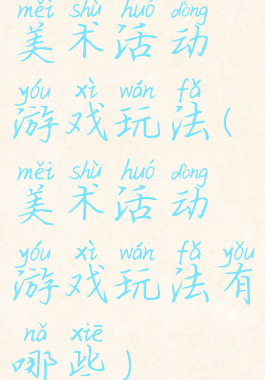 měi shù huó dòng
美术活动
yóu xì wán fǎ
游戏玩法(
měi shù huó dòng
美术活动
yóu xì wán fǎ yǒu
游戏玩法有
nǎ xiē
哪些)